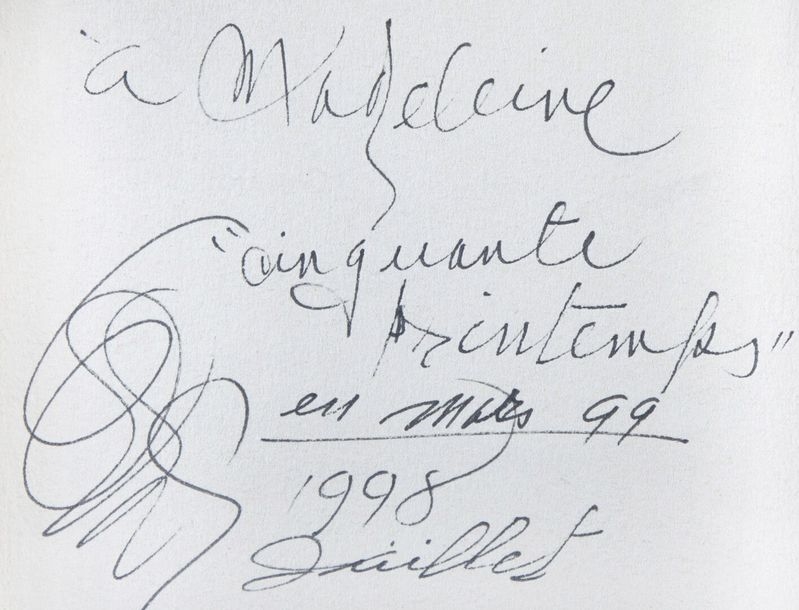 à Madeleine
"cinquante
printemps"
en mars 99
1998
Juillet